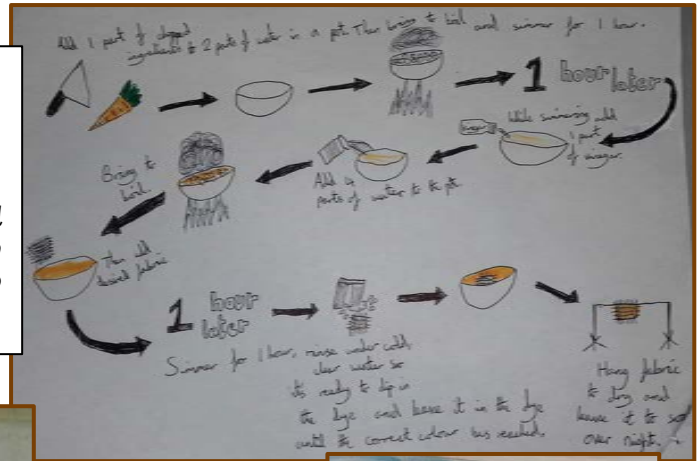 Add 1 part of chopped
ingredients to 2 parts of water in a pot. Then bring to boil and simmer for 1 hour.
1 hour later
While simmering add
1 part
of vinegar.
vinegar
Add 4
parts of water to the pot
Bring to
boil.
Then add
desired fabric
1 hour
later
Simmer for 1 hour, rinse under cold
clear water so
its ready to dip in
the dye and leave it in the dye
until the correct colour has reached.
Hang fabric
to dry and
leave it to
over night.